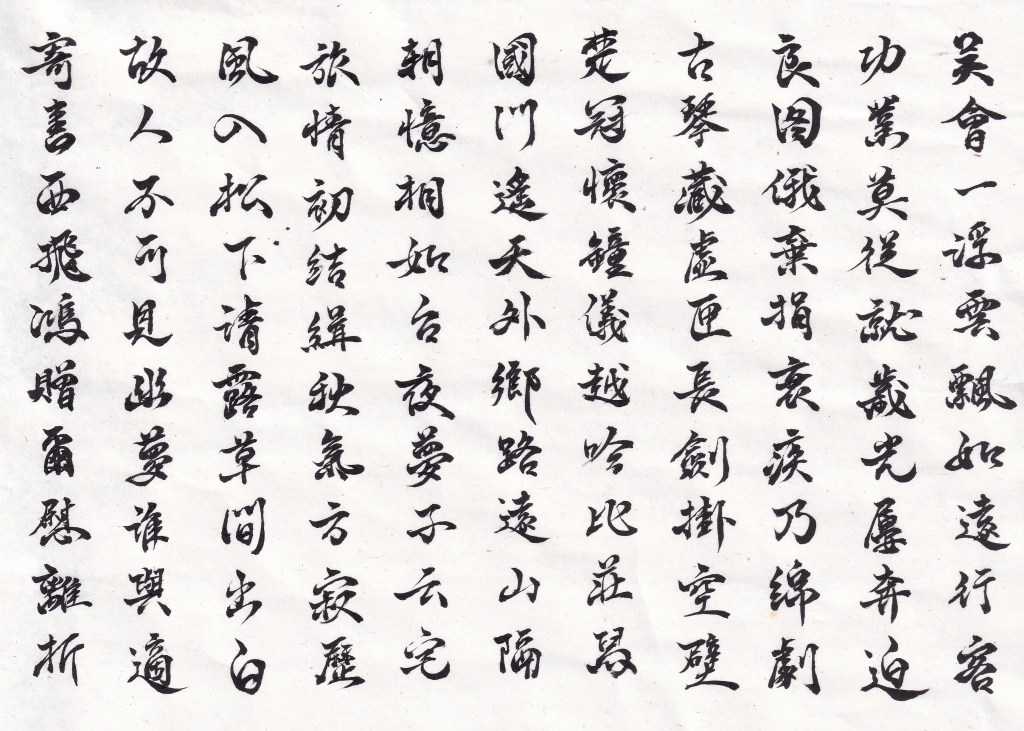 吳會一浮雲飄如遠行客
功業莫從就歲光屢奔迫
良图俄棄捐衰疾乃綿劇
古琴藏虛匣長劍掛空壁
楚冠懷鐘儀越吟比莊舄
國門遙天外鄉路遠山隔
朝憶相如台夜夢子云宅
旅情初結緝秋氣方寂歷
風入松下清露草間出白
故人不可見幽夢誰與適
寄書西飛鴻贈爾慰離折